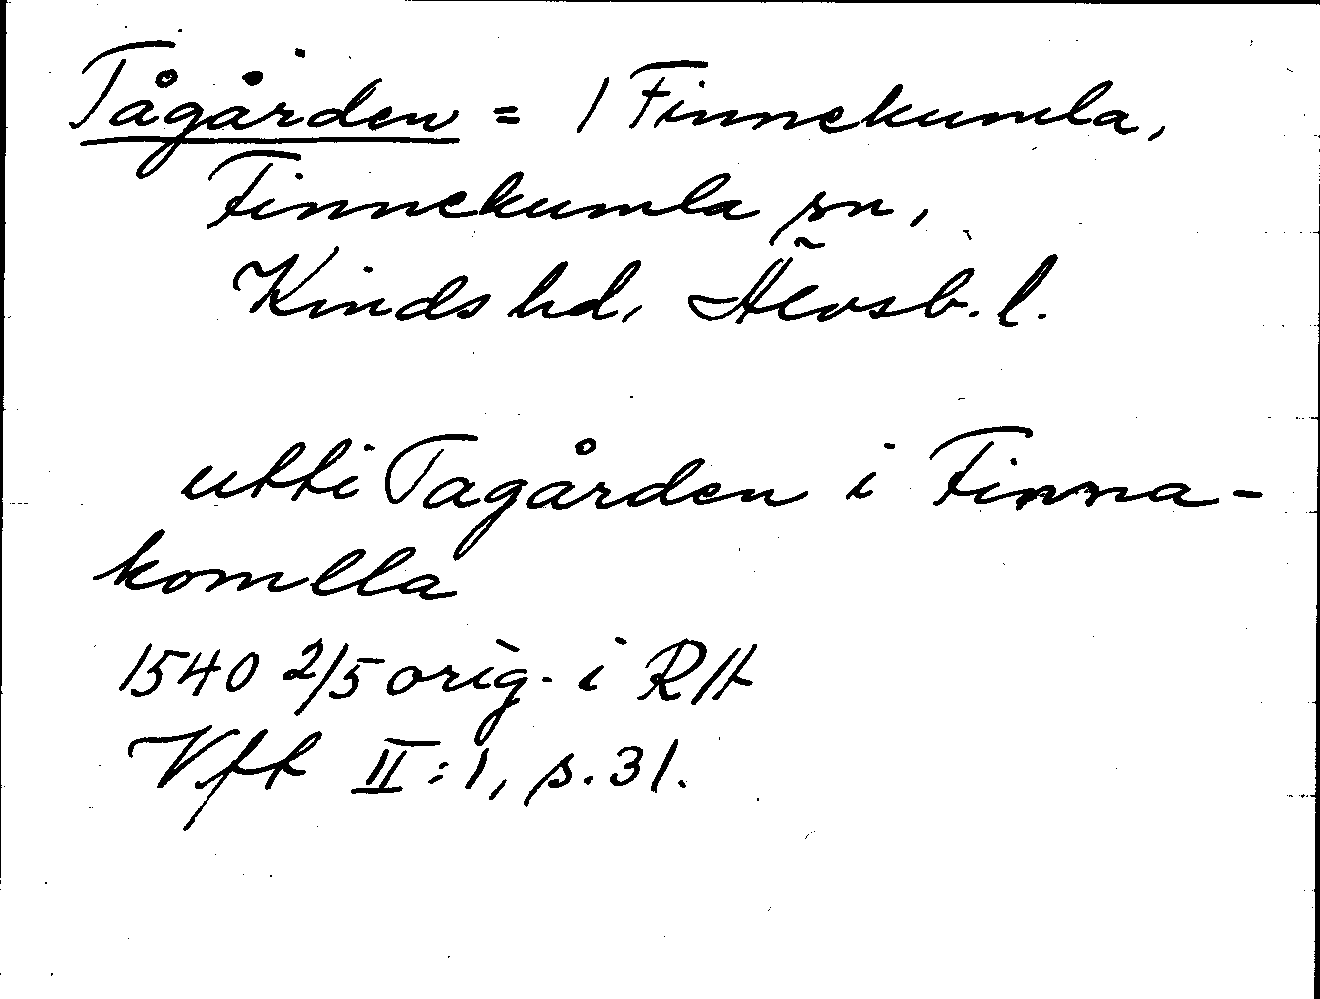 Tågården = 1 Finnekumla,
Finnekumla sn,
Kinds hd, Älvsb. l.
utti Tagården i Finna-
komlla
1540 2/5 orig. i RA
Vft II:1, s. 31.